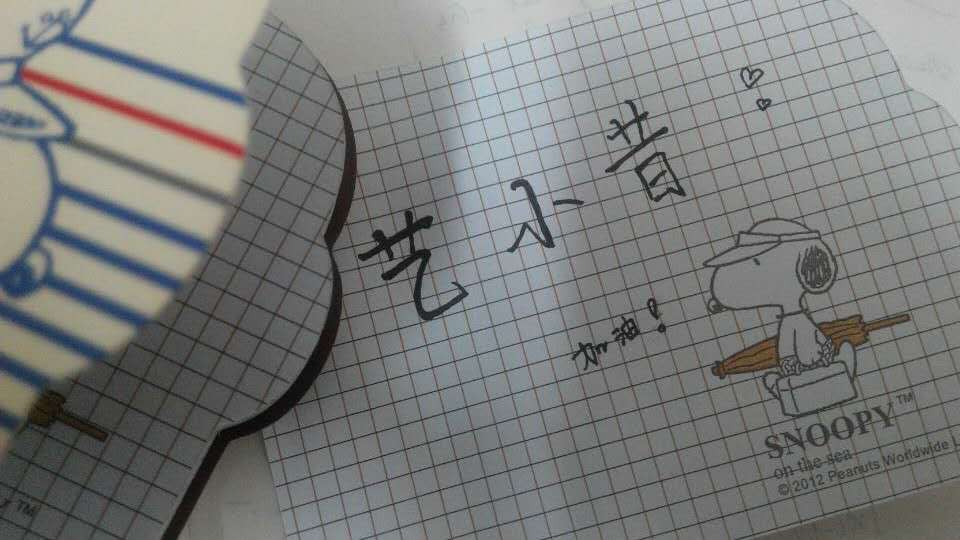 艺小昔
加油!
SNOOPY™
on the sea
© 2012 Peanuts Worldwide L